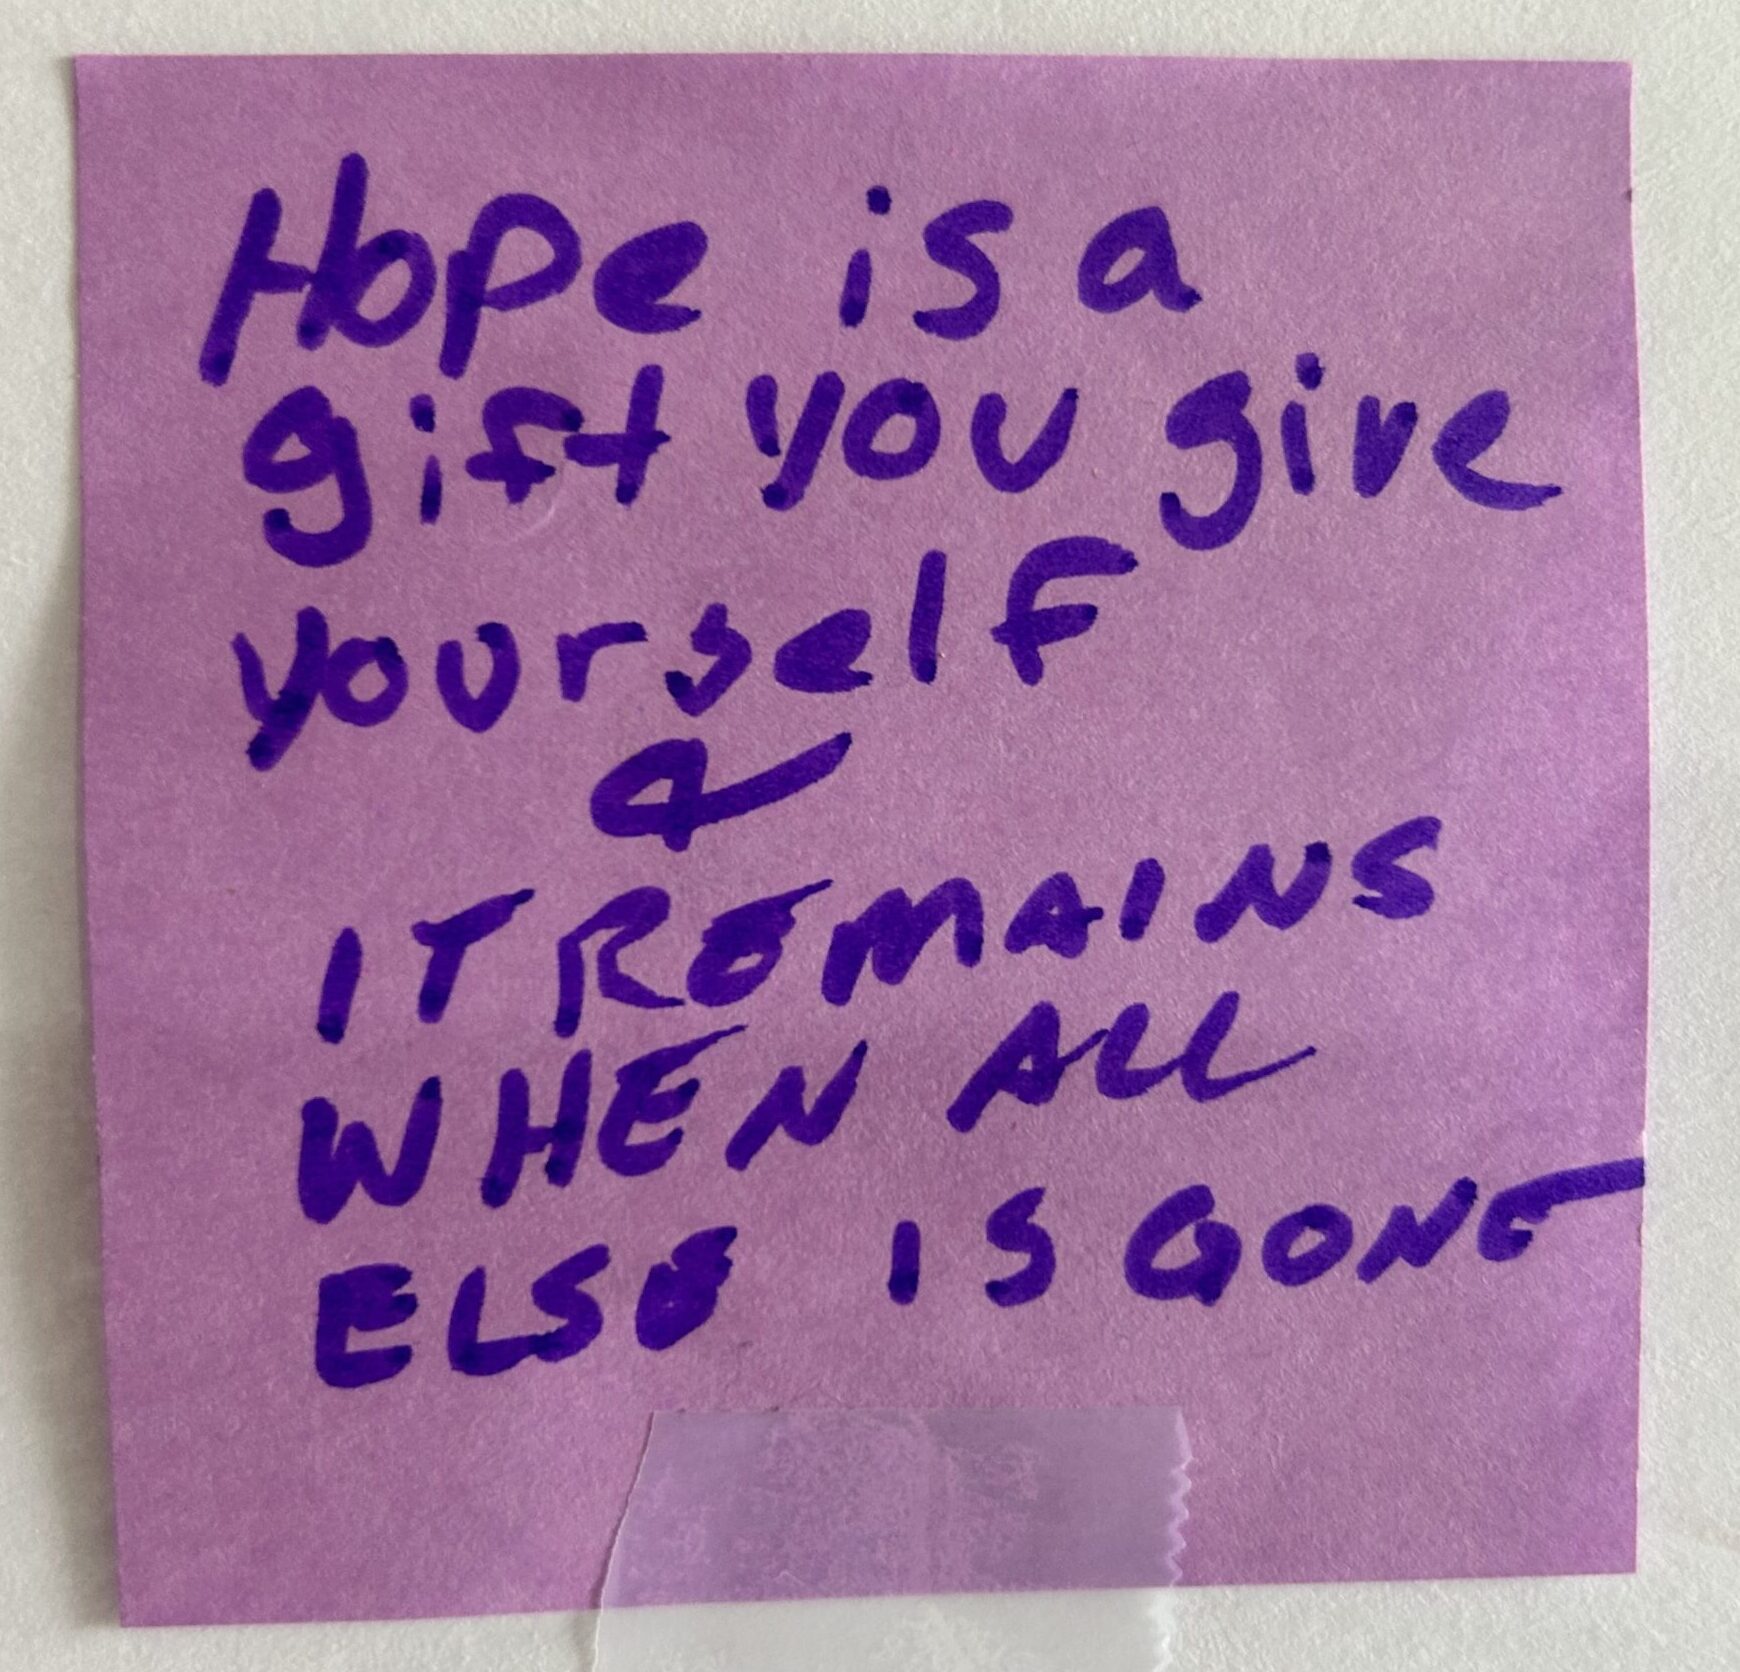 Hope is a
gift you give
yourself
&
IT REMAINS
WHEN ALL
ELSE IS GONE